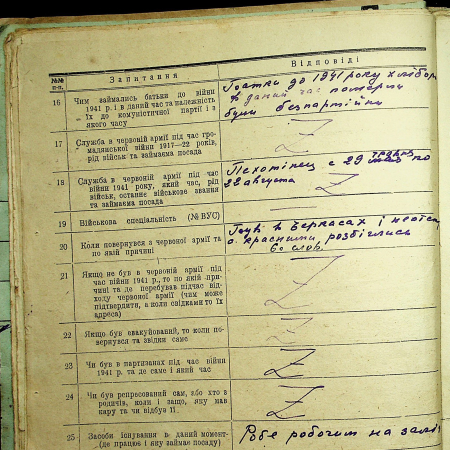 №№ п-п.
Запитання
Відповіді
16
Чим займались батьки до війни
1941 р. і в даний час та належність
їх до комуністичної партії і з
якого часу
Батьки до 1941 року хлібор
в даний час померли
були безпартійни
17
Служба в червоній армії під час гро-
мадянської війни 1917—22 років,
рід військ та займаєма посада
18
Служба в червоній армії під час
війни 1941 року, який час, рід
військ, останнє військове звання
та займаєма посада
Пехотінец с 29 по
22 августа
19
Військова спеціальність (№ ВУС)
20
Коли повернувся з червоної армії та
по якій причині
в Черкасах і
розбіглись
21
Якщо не був в червоній армії під
час війни 1941 р., то по якій при-
чині та де перебував підчас від-
ходу червоної армії (чим може
підтвердити, а коли свідками то їх
адреса)
22
Якщо був евакуйований, то коли по-
вернувся та звідки саме
23
Чи був в партизанах під час війни
1941 р. та де саме і який час
24
Чи був репресований сам, або хто з
родичів, коли і защо, яку мав
кару та чи відбув її
25
Засоби існування в даний момент
(де працює і яку займає посаду)
Робе робочим на заліз